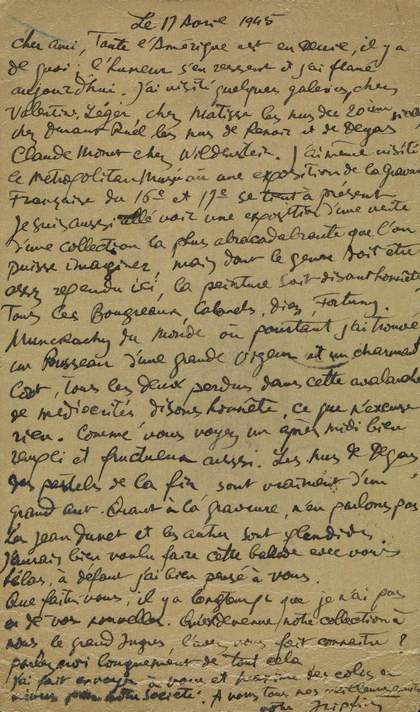 Le 17 Avril 1945
Cher ami, Toute l'Amérique est en deuil, il y a
de quoi; l'humeur s'en ressent et j'ai flané
aujourd'hui. J'ai visité quelques galeries, chez
Valentin, Léger, chez Matisse les nus du 20ième siècle
chez Durand Ruel les nus de Renoir et de Degas
Claude Monet chez Wildenstein. J'ai même visité
le Métropolitan Museum où une exposition de la Gravure
Française du 16e et 17e se tient à présent
Je suis aussi allé voir une exposition d'une vente
d'une collection la plus abracadabrante que l'on
puisse imaginer, mais dont le genre doit être
assez répandu ici, la peinture soit disant honnête
Tous les Bougreaux, Cabanels, Diaz, Fortuny,
Munckachy du monde où pourtant j'ai trouvé
un Rousseau d'une grande vigueur et un charmant
Corot, tous les deux perdus dans cette avalanche
de médiocrités disons honnête, ce que n'excuse
rien. Comme vous voyez un après midi bien
rempli et fructueux aussi. Les nus de Degas
des pastels de la fin sont vraiment d'un
grand art. Quant à la gravure, n'en parlons pas
Les Jean Duvet et les autres sont splendides.
J'aurais bien voulu faire cette balade avec vous
hélas, à défaut j'ai bien pensé à vous.
Que faites vous, il y a longtemps que je n'ai pas
eu de vos nouvelles. Qu'est devenue notre collection à
nous, le grand Ingres, l'avez vous fait connaitre?
parlez moi longuement de tout cela
J'ai fait envoyer à vous et
pour notre Société. A vous tous nos meilleures amitiés
votre Lipchitz